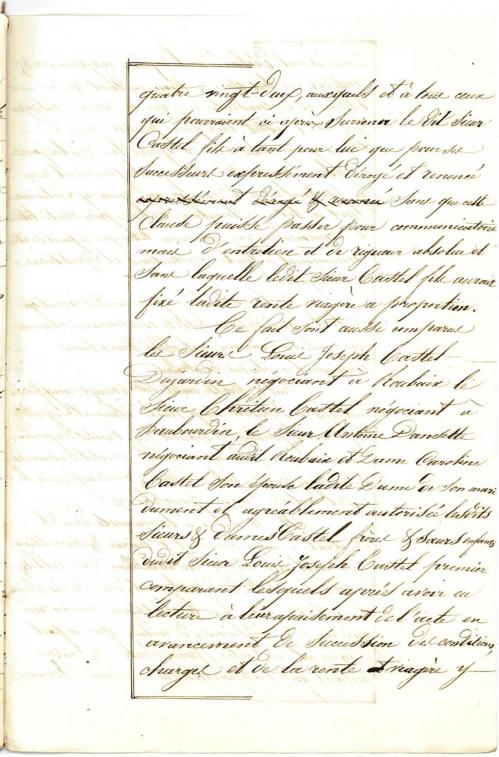 quatre vingt-deux, auxquels et à tous ceux
qui pourraient ci après survenir le dit Sieur
Castel fils à tant pour lui que pour ses
Successeurs expressément dérogé et renoncé
expressément dérogé & renoncé Sans que cette
Clause puisse passer pour comminatoire
mais d'entretien et de rigueur absolue et
Sans laquelle ledit Sieur Castel fils aurait
fixé ladite rente viagère a proportion.
Ce fait sont aussi comparus
les Sieurs Louis Joseph Castel
Dujardin négociant à Roubaix le
Sieur Chrétien Castel négociant à
haubourdin, le Sieur Antoine Dansette
négociant audit Roubaix et Dame Caroline
Castel Son épouse ladite Dame de Son mari
dument et agréablement autorisée lesdits
Sieurs & dames Castel frères & sœurs enfants
dudit Sieur Louis Joseph Castel premier
comparant lesquels après avoir eu
lecture à leur apaisement de l'acte en
avancement de Succession des conditions,
charges et de la rente viagère y